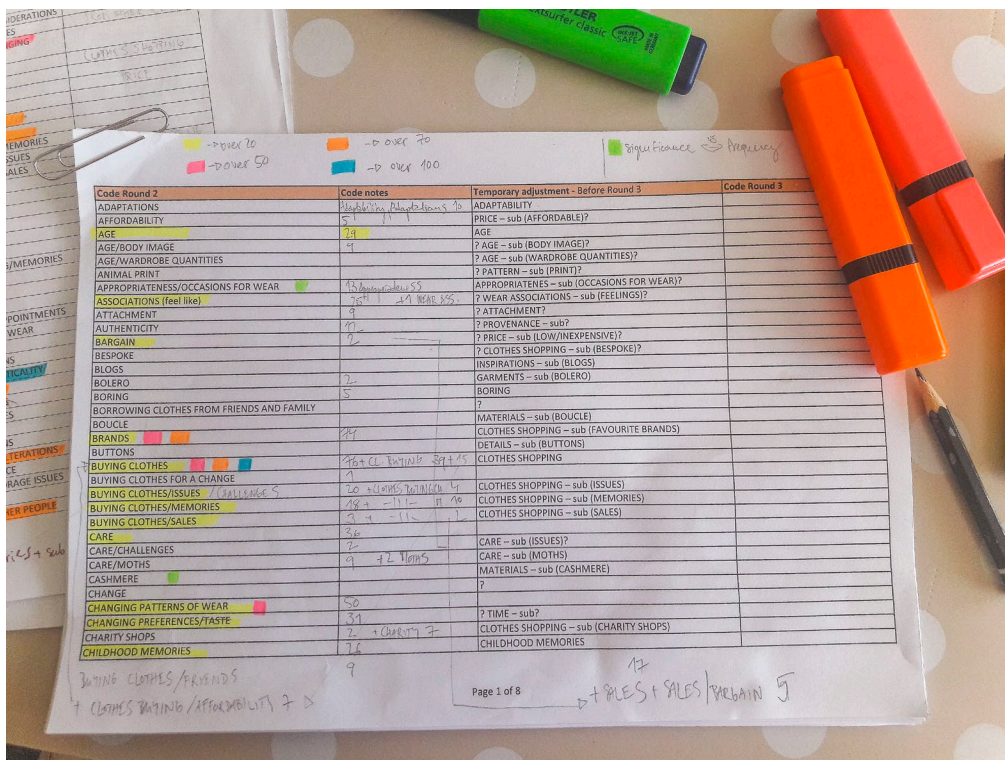 STAEDTLER
textsurfer classic
INK JET
SAFE
MADE IN
GERMANY
SIDERATIONS
CLOTHES SHOPPING
EMORIES
SSUES
ALES
G/MEMORIES
POINTMENTS
WEAR
NS
TICALITY
TERATIONS
CE
RAGE ISSUES
HER PEOPLE
→ over 20
→ over 70
→ over 50
→ over 100
significance frequency
Code Round 2 Code notes Temporary adjustment - Before Round 3 Code Round 3
ADAPTATIONS Adaptability, Adaptations 10 ADAPTABILITY
AFFORDABILITY 5 PRICE – sub (AFFORDABLE)?
AGE 29 AGE
AGE/BODY IMAGE 9 ? AGE – sub (BODY IMAGE)?
AGE/WARDROBE QUANTITIES ? AGE – sub (WARDROBE QUANTITIES)?
ANIMAL PRINT ? PATTERN – sub (PRINT)?
APPROPRIATENESS/OCCASIONS FOR WEAR 13 APPROPRIATENES – sub (OCCASIONS FOR WEAR)?
ASSOCIATIONS (feel like) +1 WEAR ASS. ? WEAR ASSOCIATIONS – sub (FEELINGS)?
ATTACHMENT 9 ? ATTACHMENT?
AUTHENTICITY ? PROVENANCE – sub?
BARGAIN 2 ? PRICE – sub (LOW/INEXPENSIVE)?
BESPOKE ? CLOTHES SHOPPING – sub (BESPOKE)?
BLOGS INSPIRATIONS – sub (BLOGS)
BOLERO 2 GARMENTS – sub (BOLERO)
BORING 5 BORING
BORROWING CLOTHES FROM FRIENDS AND FAMILY ?
BOUCLE MATERIALS – sub (BOUCLE)
BRANDS 74 CLOTHES SHOPPING – sub (FAVOURITE BRANDS)
BUTTONS DETAILS – sub (BUTTONS)
BUYING CLOTHES 76 + CL. BUYING 39 + 15 CLOTHES SHOPPING
BUYING CLOTHES FOR A CHANGE 1
BUYING CLOTHES/ISSUES /CHALLENGES 20 + CLOTHES BUYING 4 CLOTHES SHOPPING – sub (ISSUES)
BUYING CLOTHES/MEMORIES 18 + -11- 10 CLOTHES SHOPPING – sub (MEMORIES)
BUYING CLOTHES/SALES 3 + -11- CLOTHES SHOPPING – sub (SALES)
CARE 36
CARE/CHALLENGES 2 CARE – sub (ISSUES)?
CARE/MOTHS 9 +2 MOTHS CARE – sub (MOTHS)
CASHMERE MATERIALS – sub (CASHMERE)
CHANGE ?
CHANGING PATTERNS OF WEAR 50
CHANGING PREFERENCES/TASTE 31 ? TIME – sub?
CHARITY SHOPS 2 + CHARITY 7 CLOTHES SHOPPING – sub (CHARITY SHOPS)
CHILDHOOD MEMORIES 26 CHILDHOOD MEMORIES
BUYING CLOTHES/FRIENDS 9
+ CLOTHES BUYING/AFFORDABILITY 7
Page 1 of 8
17
+ SALES + SALES/BARGAIN 5